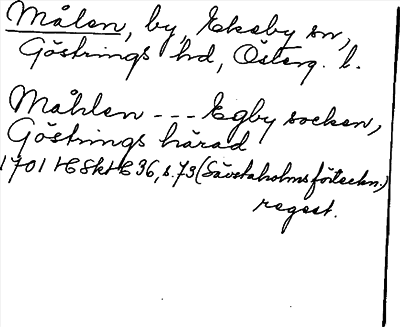 Målen, by, Ekeby sn,
Göstrings hd, Österg. l.
Måhlen --- Egby socken,
Göstrings härad
1701 HSkH 36, s. 73 (Sävstaholmsförteckn.)
regest.